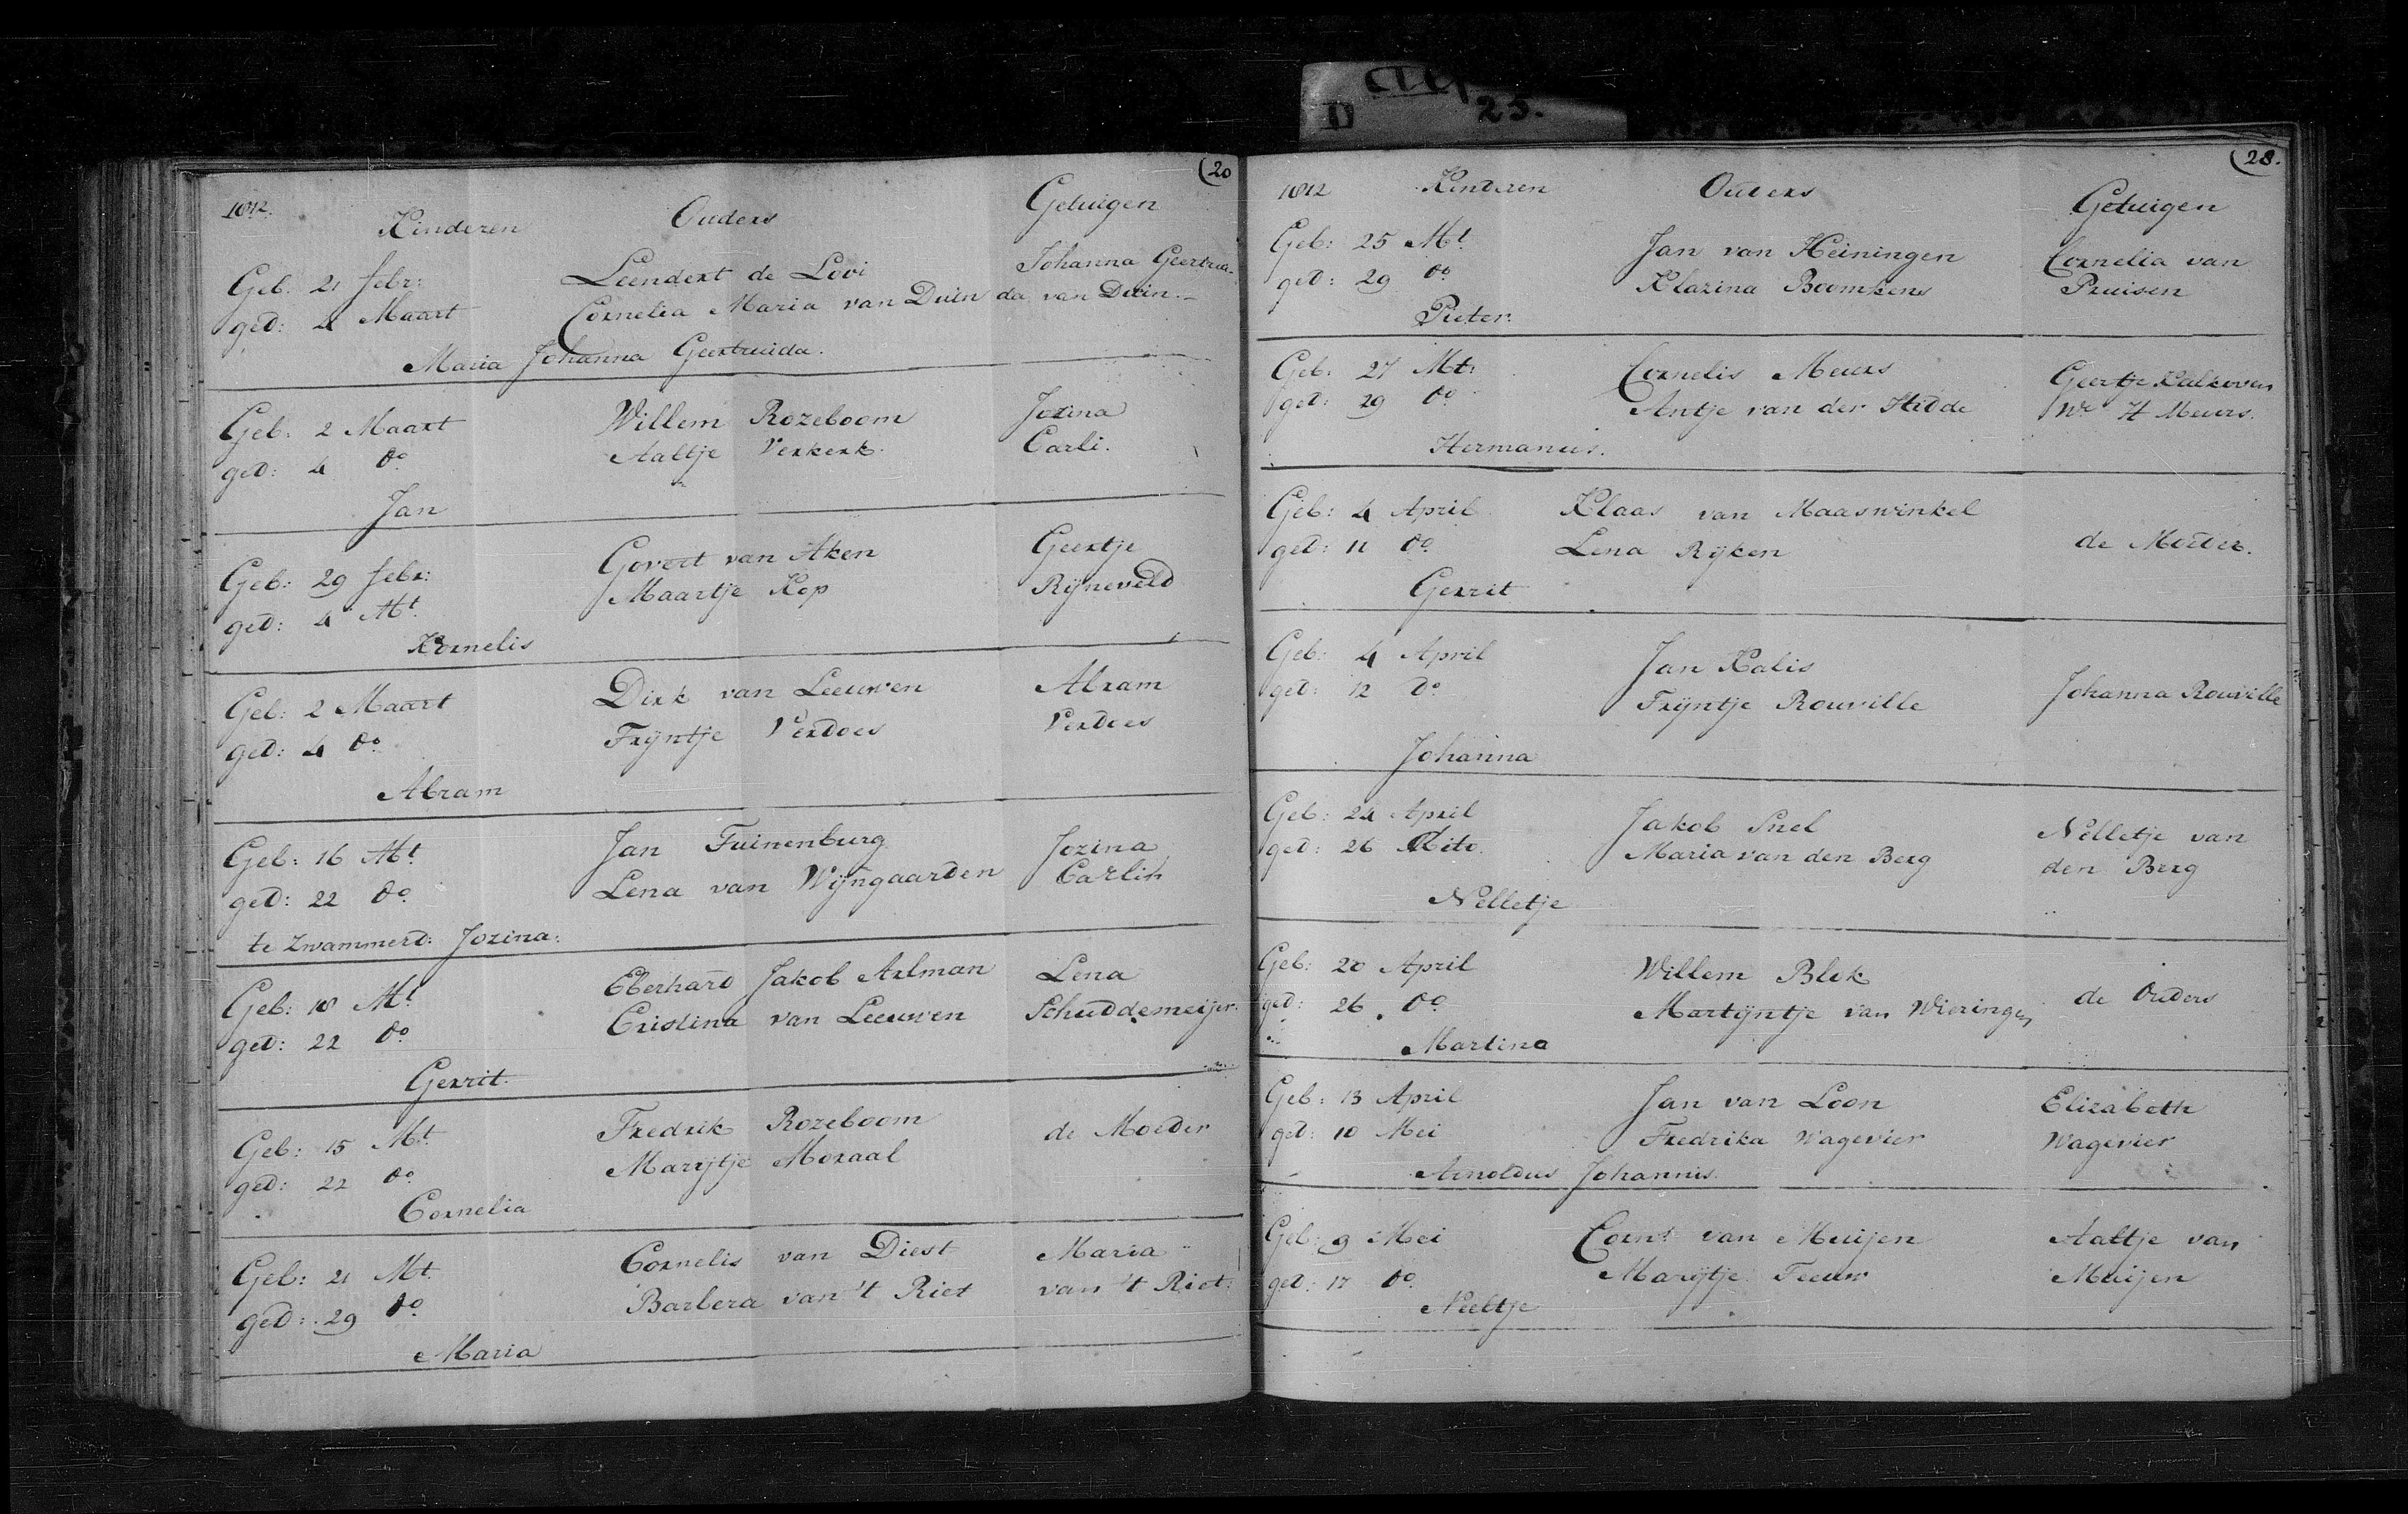 D 25.
(20
1812.
Kinderen Ouders Getuigen
Geb. 21 febr: Leendert de Looi Johanna Geertrui-
ged: 4 Maart Cornelia Maria van Duin da van Duin.-
Maria Johanna Geertruida.
Geb. 2 Maart Willem Rozeboom Jozina
ged: 4 do Aaltje Verkerk. Carli.
Jan
Geb: 29 febr: Govert van Aken Geertje
ged: 4 Mt. Maartje Kop Rijneveld
Kornelis
Geb: 2 Maart Dirk van Leeuwen Abram
ged: 4 do Trijntje Verdoes Verdoes
Abram
Geb: 16 Mt Jan Tuinenburg Jozina
ged: 22 do. Lena van Wijngaarden Carlin
te Zwammerd: Jozina.
Geb: 18 Mt Eberhard Jakob Arlman Lena
ged: 22 do Cristina van Leeuwen Schuddemeijer.
Gerrit.
Geb: 15 Mt Fredrik Rozeboom de Moeder
ged: 22 do Marijtje Moraal
Cornelia
Geb: 21 Mt. Cornelis van Diest Maria
ged: 29 do Barbera van 't Riet van 't Riet.
Maria
(28.
1812 Kinderen Ouders Getuigen
Geb: 25 Mt. Jan van Heiningen Cornelia van
ged: 29 do Klazina Boomkens Pruisen
Pieter.
Geb: 27 Mt: Cornelis Meurs Geertje
ged: 29 do Antje van der Hidde We H Meurs.
Hermanus.
Geb: 4 April Klaas van Maaswinkel
ged: 11 do. Lena Rijken de Moeder.
Gerrit
Geb: 4 April Jan Kalis
ged: 12 do Trijntje Rouville Johanna Rouville
Johanna
Geb: 24 April Jakob Snel Nelletje van
ged: 26 dito. Maria van den Berg den Berg
Nelletje
Geb: 20 April Willem Blok
ged: 26. do. Martijntje van Wieringen de Ouders
Martina
Geb: 13 April Jan van Loon Elizabeth
ged: 10 Mei Fredrika Wagevier Wagevier
Arnoldus Johannis.
Geb: 9 Mei Corns. van Muijen Aaltje van
ged: 17 do. Marijtje Teeuw Muijen
Neeltje